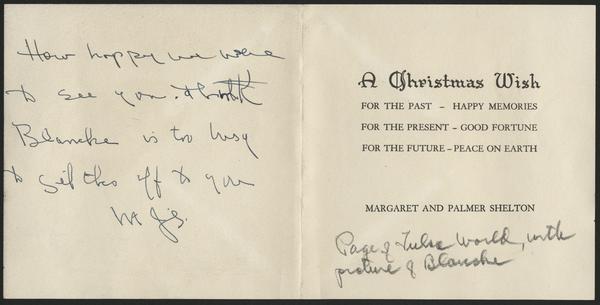 How happy we were
to see you. think
Blanche is too busy
to get this off to you
A Christmas Wish
FOR THE PAST – HAPPY MEMORIES
FOR THE PRESENT – GOOD FORTUNE
FOR THE FUTURE – PEACE ON EARTH
MARGARET AND PALMER SHELTON
Page of Tulsa World, with
picture of Blanche